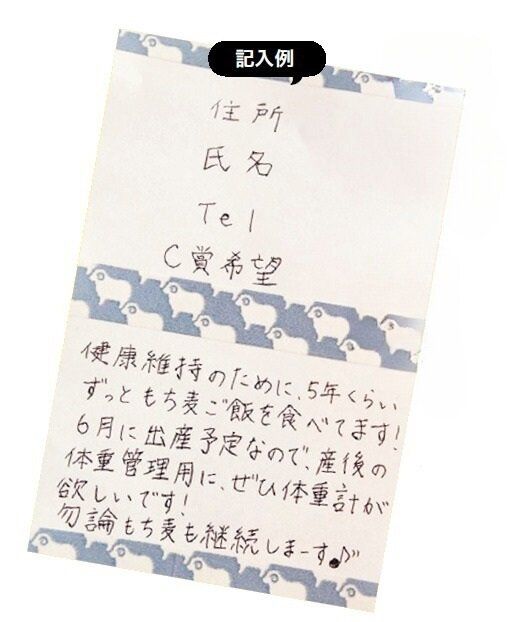 記入例
住所
氏名
Tel
C賞希望
健康維持のために、5年くらい
ずっともち麦ご飯を食べてます!
6月に出産予定なので、産後の
体重管理用に、ぜひ体重計が
欲しいです!
勿論もち麦も継続しまーす♪